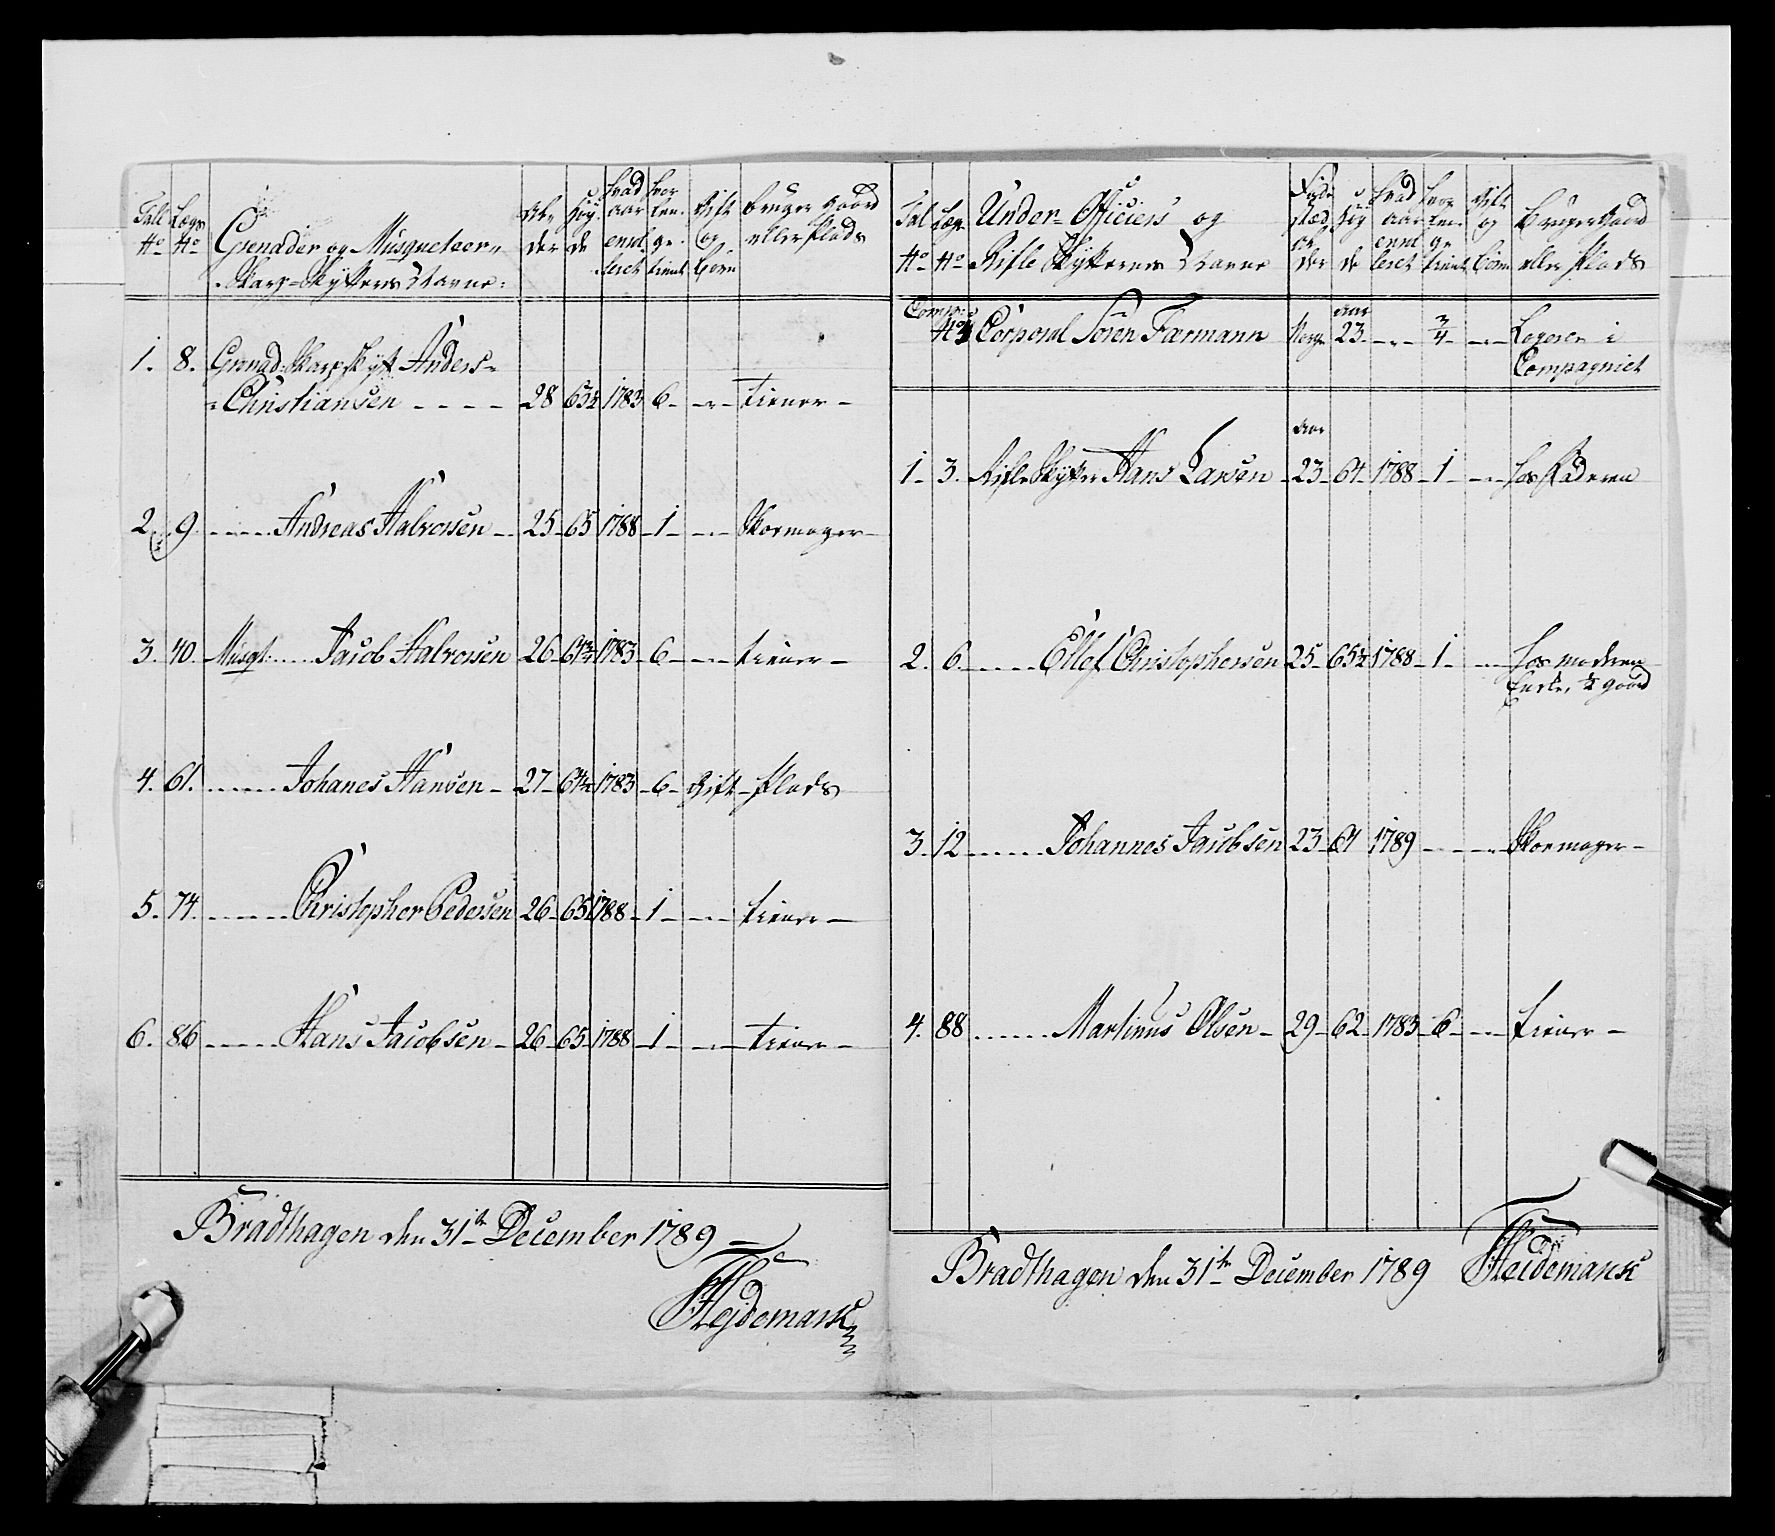 Tall No | Lægs No | Grenader og Musqueteer- Skarp-Skytternes Navne: | Alder | Høyde | hvad aar enroleret | hvor længe tient | Gift og Børn | bruger gaard eller Plads
1. 8. Grenad: Skarp Skyt. Anders-
Christiansen - - - - 28 63½ 1783 6 - - - tiener -
2. 9. - - - - Andreas Halvorsen - 25 - 65 1788 - 1 - - - Skoemager -
3. 40. Musqt. - - - Jacob Halvorsen 26 64¾ 1783 - 6 - - - tiener -
4. 61. - - - - Johanes Hansen - 27 - 64½ 1783 - 6 - Gift - Plads
5. 74. - - - - Christopher Pedersen 26 - 65½ 1788 - 1 - - - tiener -
6. 86 - - - - Hans Jacobsen - 26 - 65 - 1788 - 1 - - - tiener -
Bradthagen den 31te December 1789 -
Hejdemark
Tal No | Læg No | Under-Officiers og Rifle Skytternes Navne | Føde Stæd og Alder | Høyde | hvad aar enroleret | hvor længe tient | Gift og Børn | bruger Gaard eller Plads
Comp:s
No 3 Corporal Sören Farmann Norge aar 23 - - - ¾ - - - Logerer i
Compagniet
aar
1 - 3. Rifle Skytter Hans Larsen - 23 - 64 - 1788 - 1 - - - hos Faderen
2. 6. - - - - Ellef Christophersen 25 - 65½ 1788 - 1 - - - hos moderen
Enke, ½ gaard
3. 12 - - - - Johannes Jacobsen 23 - 64 1789 - - - - Skoemager -
4. 88 - - - - Martinus Olsen - 29 - 62 - 1783 - 6 - - - tiener -
Bradthagen den 31te December 1789 Heidemark